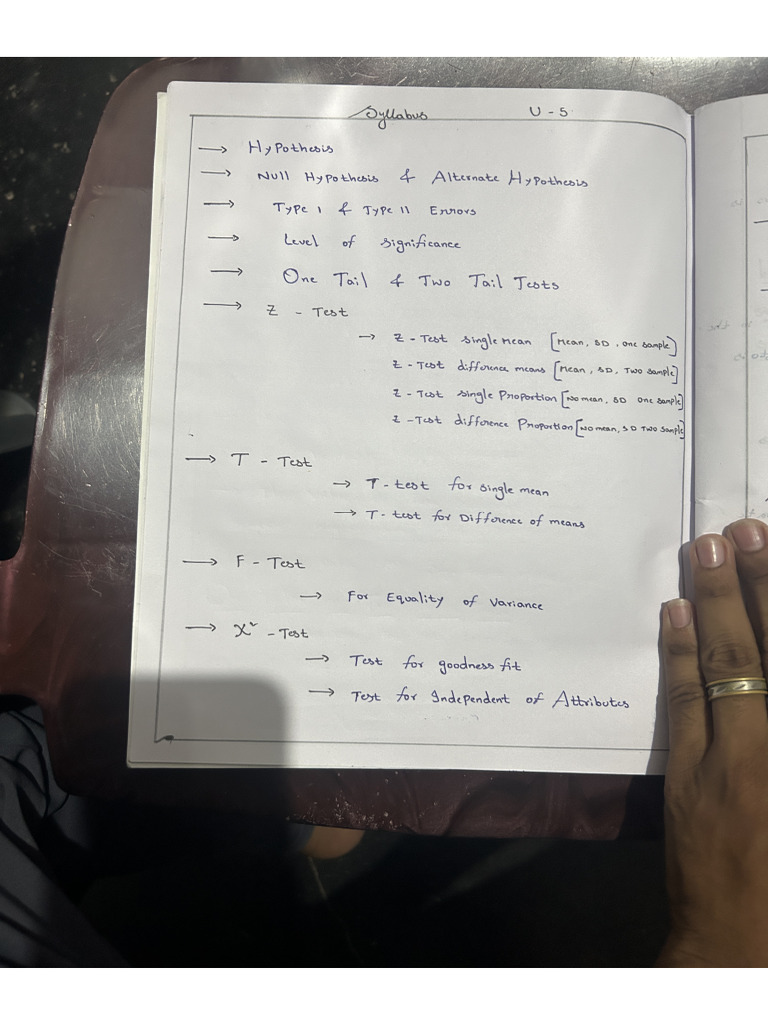 Syllabus U - 5
→ Hypothesis
→ Null Hypothesis & Alternate Hypothesis
→ Type I & Type II Errors
→ Level of significance
→ One Tail & Two Tail Tests
→ Z - Test
→ Z - Test single Mean [Mean, SD, one sample]
Z - Test difference means [Mean, SD, Two sample]
Z - Test single Proportion [No mean, SD one sample]
Z - Test difference Proportion [No mean, SD Two Sample]
→ T - Test
→ T - test for single mean
→ T - test for Difference of means
→ F - Test
→ For Equality of Variance
→ χ² - Test
→ Test for goodness fit
→ Test for Independent of Attributes